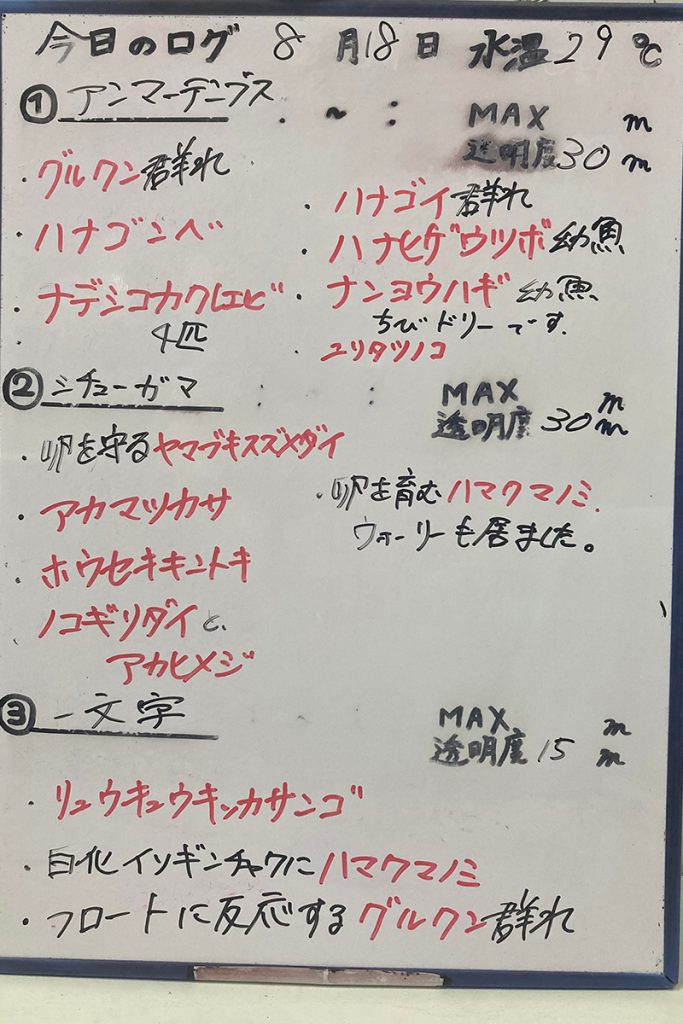 今日のログ 8月18日 水温29℃
① アンマーデニブス ~ : MAX m
透明度30m
・グルクン群れ
・ハナゴンベ
・ナデシコカクレエビ
4匹
・ハナゴイ群れ
・ハナヒゲウツボ幼魚
・ナンヨウハギ幼魚
ちびドリーです.
・ユリタツノコ
② シチューガマ : : MAX m
透明度30m
・卵を守るヤマブキスズメダイ
・アカマツカサ
・ホウセキキントキ
ノコギリダイと、
アカヒメジ
・卵を育むハマクマノミ.
ウォーリーも居ました。
③ 一文字 MAX m
透明度15m
・リュウキュウキッカサンゴ
・白化イソギンチャクにハマクマノミ
・フロートに反応するグルクン群れ